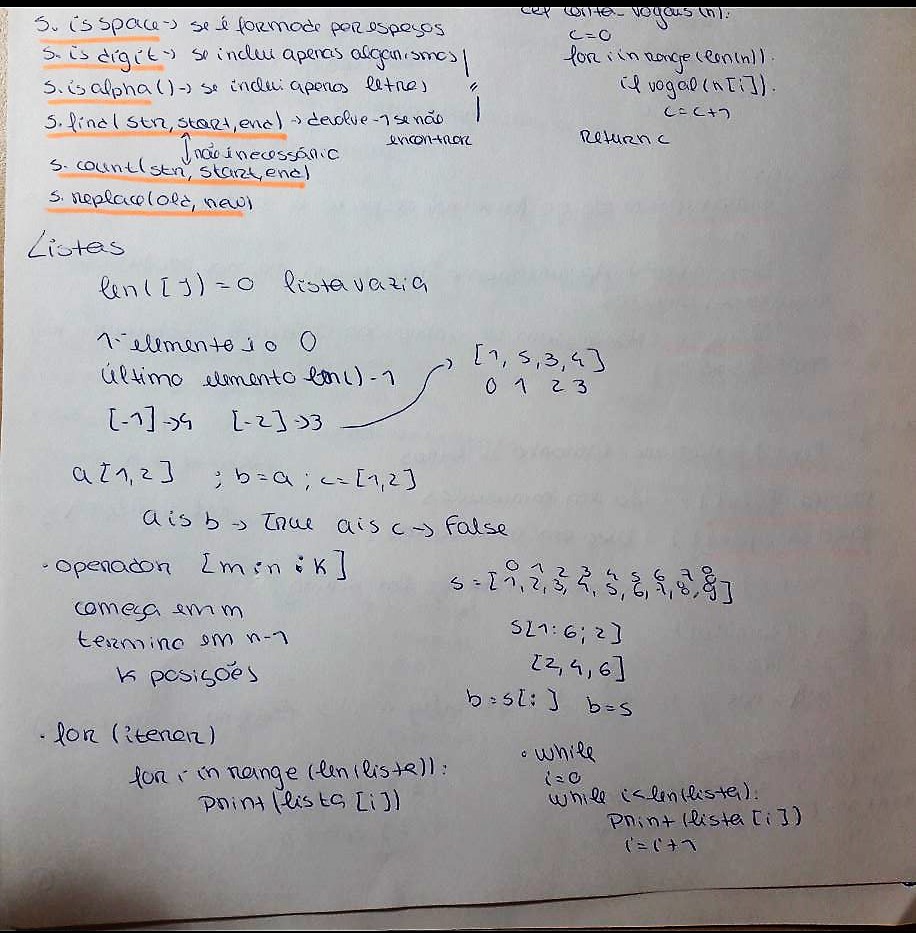 s. isspace → se é formado por espaços
s. isdigit → se inclui apenas algarismos
s. isalpha () → se inclui apenas letras
s. find( str, start, end) → devolve -1 se não
encontrar
não é necessário
s. count(str, start, end)
s. replace(old, new)
def conta_vogais (n):
c=0
for i in range(len(n)):
if vogal (n[i]):
c=c+1
Return c
Listas
len([ ]) = 0 lista vazia
1º elemento é o 0
Último elemento len()-1
[-1]→4 [-2]→3
[1, 5, 3, 4]
0 1 2 3
a[1,2] ; b=a ; c=[1,2]
a is b → True a is c → False
• operador [m:n:k]
começa em m
termina em n-1
k posições
0 1 2 3 4 5 6 7 8
s=[1, 2, 3, 4, 5, 6, 7, 8, 9]
s[1:6;2]
[2,4,6]
b=s[:] b=s
• for (iterar)
for i in range (len(lista)):
print(lista [i])
• while
i=0
while i<len(lista):
print(lista [i])
i=i+1